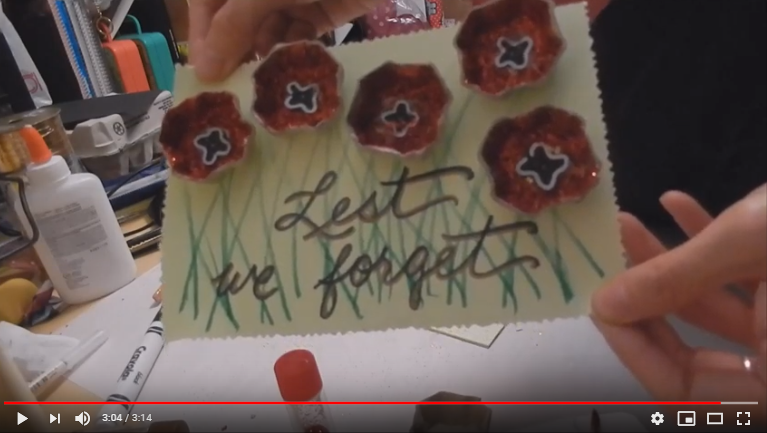 Lest
we forget
Crayola
3:04 / 3:14